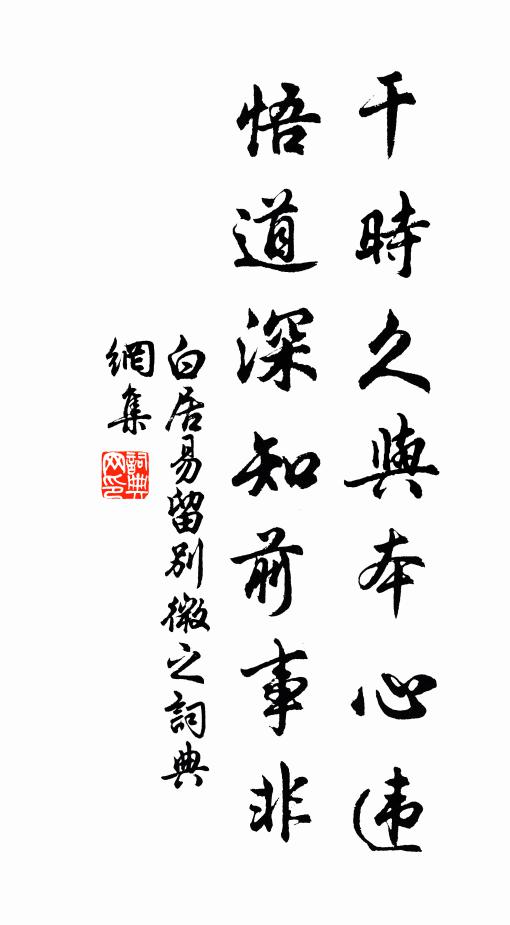 干時久與本心違
悟道深知前事非
白居易留別微之詞典
網集
詞典網印